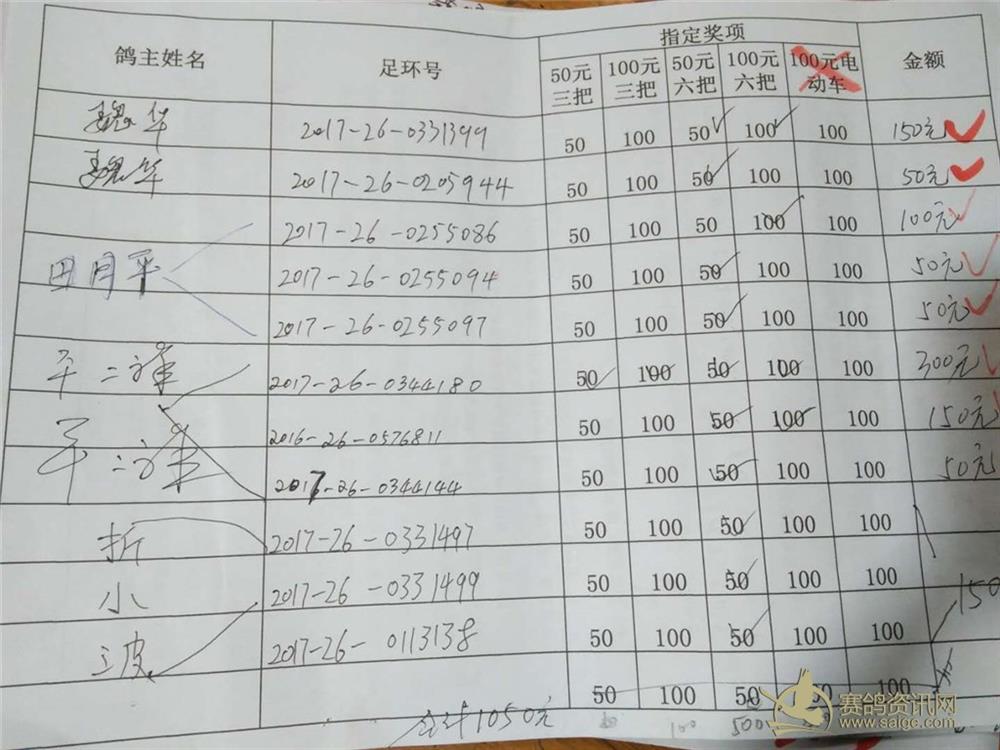 指定奖项
鸽主姓名 足环号 50元三把 100元三把 50元六把 100元六把 100元电动车 金额
魏华 2017-26-0331399 50 100 50 100 100 150元
魏华 2017-26-0205944 50 100 50 100 100 50元
2017-26-0255086 50 100 50 100 100 100元
田月平 2017-26-0255094 50 100 50 100 100 50元
2017-26-0255097 50 100 50 100 100 50元
2017-26-0344180 50 100 50 100 100 300元
2016-26-0576811 50 100 50 100 100 150元
2017-26-0344144 50 100 50 100 100 50元
折 2017-26-0331497 50 100 50 100 100
小 2017-26-0331499 50 100 50 100 100 150
三皮 2017-26-0113138 50 100 50 100 100
50 100 50 100 100
合计1050元
赛鸽资讯网
www.saige.com